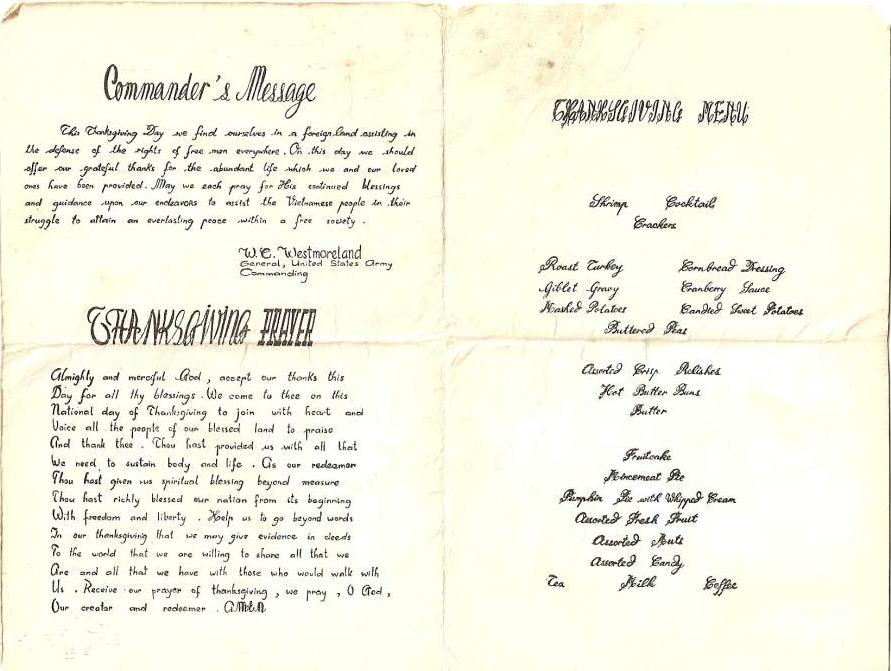 Commander's Message
This Thanksgiving Day we find ourselves in a foreign land assisting in
the defense of the rights of free men everywhere. On this day we should
offer our grateful thanks for the abundant life which we and our loved
ones have been provided. May we each pray for His continued blessings
and guidance upon our endeavors to assist the Vietnamese people in their
struggle to attain an everlasting peace within a free society.
W.C. Westmoreland
General, United States Army
Commanding
THANKSGIVING PRAYER
Almighty and merciful God, accept our thanks this
Day for all thy blessings. We come to thee on this
National day of Thanksgiving to join with heart and
Voice all the people of our blessed land to praise
And thank thee. Thou hast provided us with all that
We need to sustain body and life. As our redeemer
Thou hast given us spiritual blessing beyond measure
Thou hast richly blessed our nation from its beginning
With freedom and liberty. Help us to go beyond words
In our thanksgiving that we may give evidence in deeds
To the world that we are willing to share all that we
Are and all that we have with those who would walk with
Us. Receive our prayer of thanksgiving, we pray, O God,
Our creator and redeemer. AMEN
THANKSGIVING MENU
Shrimp Cocktail
Crackers
Roast Turkey Cornbread Dressing
Giblet Gravy Cranberry Sauce
Mashed Potatoes Candied Sweet Potatoes
Buttered Peas
Assorted Crisp Relishes
Hot Butter Buns
Butter
Fruitcake
Mincemeat Pie
Pumpkin Pie with Whipped Cream
Assorted Fresh Fruit
Assorted Nuts
Assorted Candy
Tea Milk Coffee